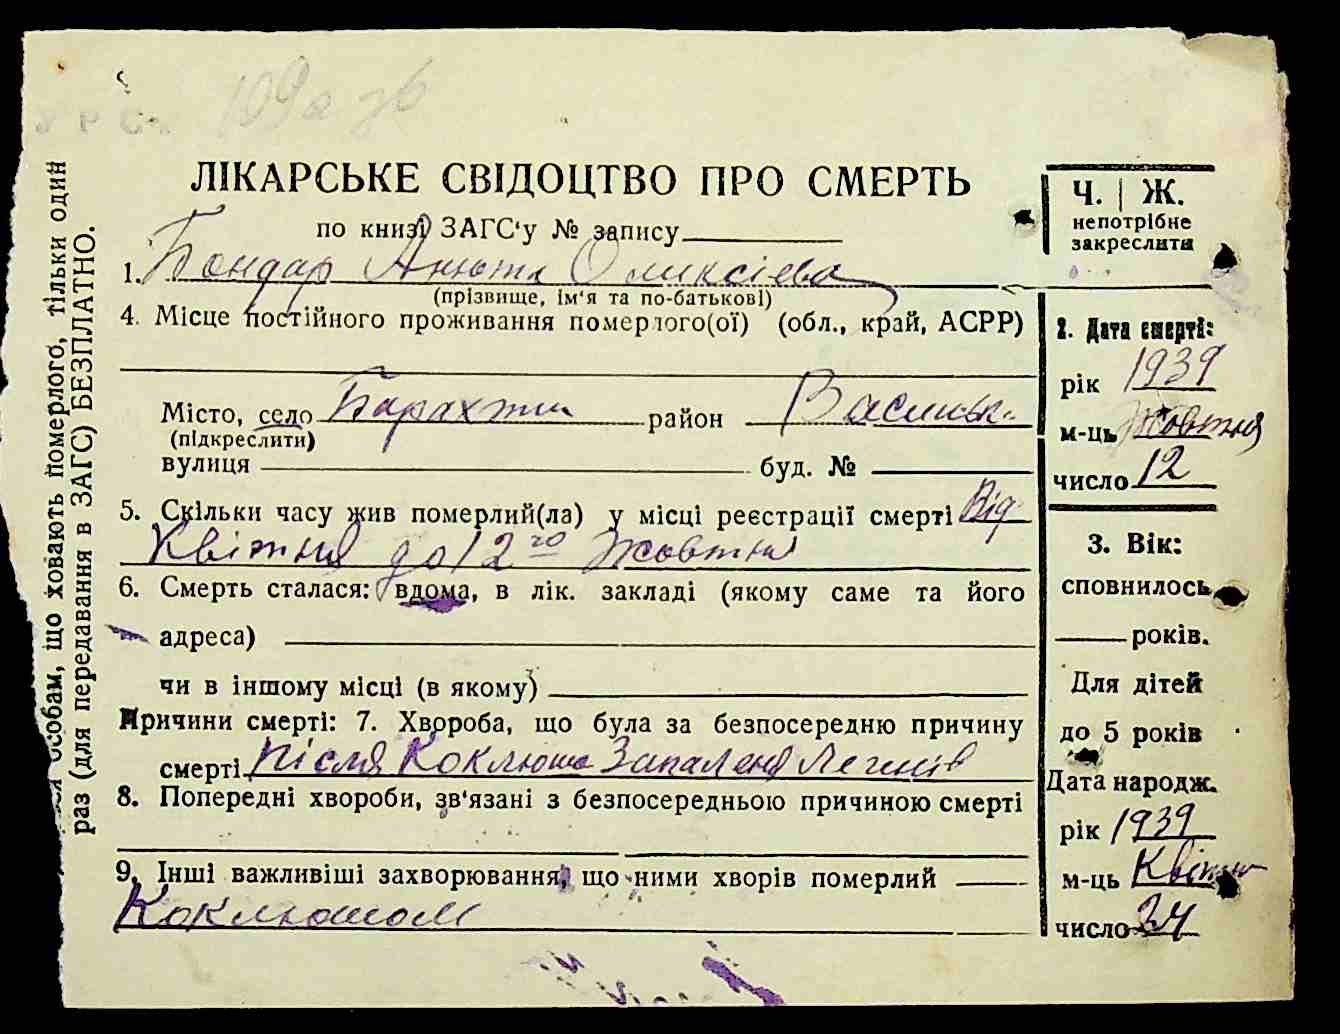 УРС
109а зв
ЛІКАРСЬКЕ СВІДОЦТВО ПРО СМЕРТЬ
по книзі ЗАГС'у № запису
1. Бондар Анюта Оликсіева
(прізвище, ім'я та по-батькові)
4. Місце постійного проживання померлого(ої) (обл., край, АСРР)
Місто, село Барахти район Васильк.
(підкреслити)
вулиця буд. №
5. Скільки часу жив померлий(ла) у місці реєстрації смерті Від
Квітня до 12го Жовтня
6. Смерть сталася: вдома, в лік. закладі (якому саме та його
адреса)
чи в іншому місці (в якому)
Причини смерті: 7. Хвороба, що була за безпосередню причину
смерті Після Коклюша Запаленя Легенів
8. Попередні хвороби, зв'язані з безпосередньою причиною смерті
9. Інші важливіші захворювання, що ними хворів померлий
Коклюшом
Ч. | Ж.
непотрібне
закреслити
2. Дата смерті:
рік 1939
м-ць Жовтня
число 12
3. Вік:
сповнилось
років.
Для дітей
до 5 років
Дата народж.
рік 1939
м-ць Квітня
число 24
особам, що ховають померлого, тільки один
раз (для передавання в ЗАГС) БЕЗПЛАТНО.